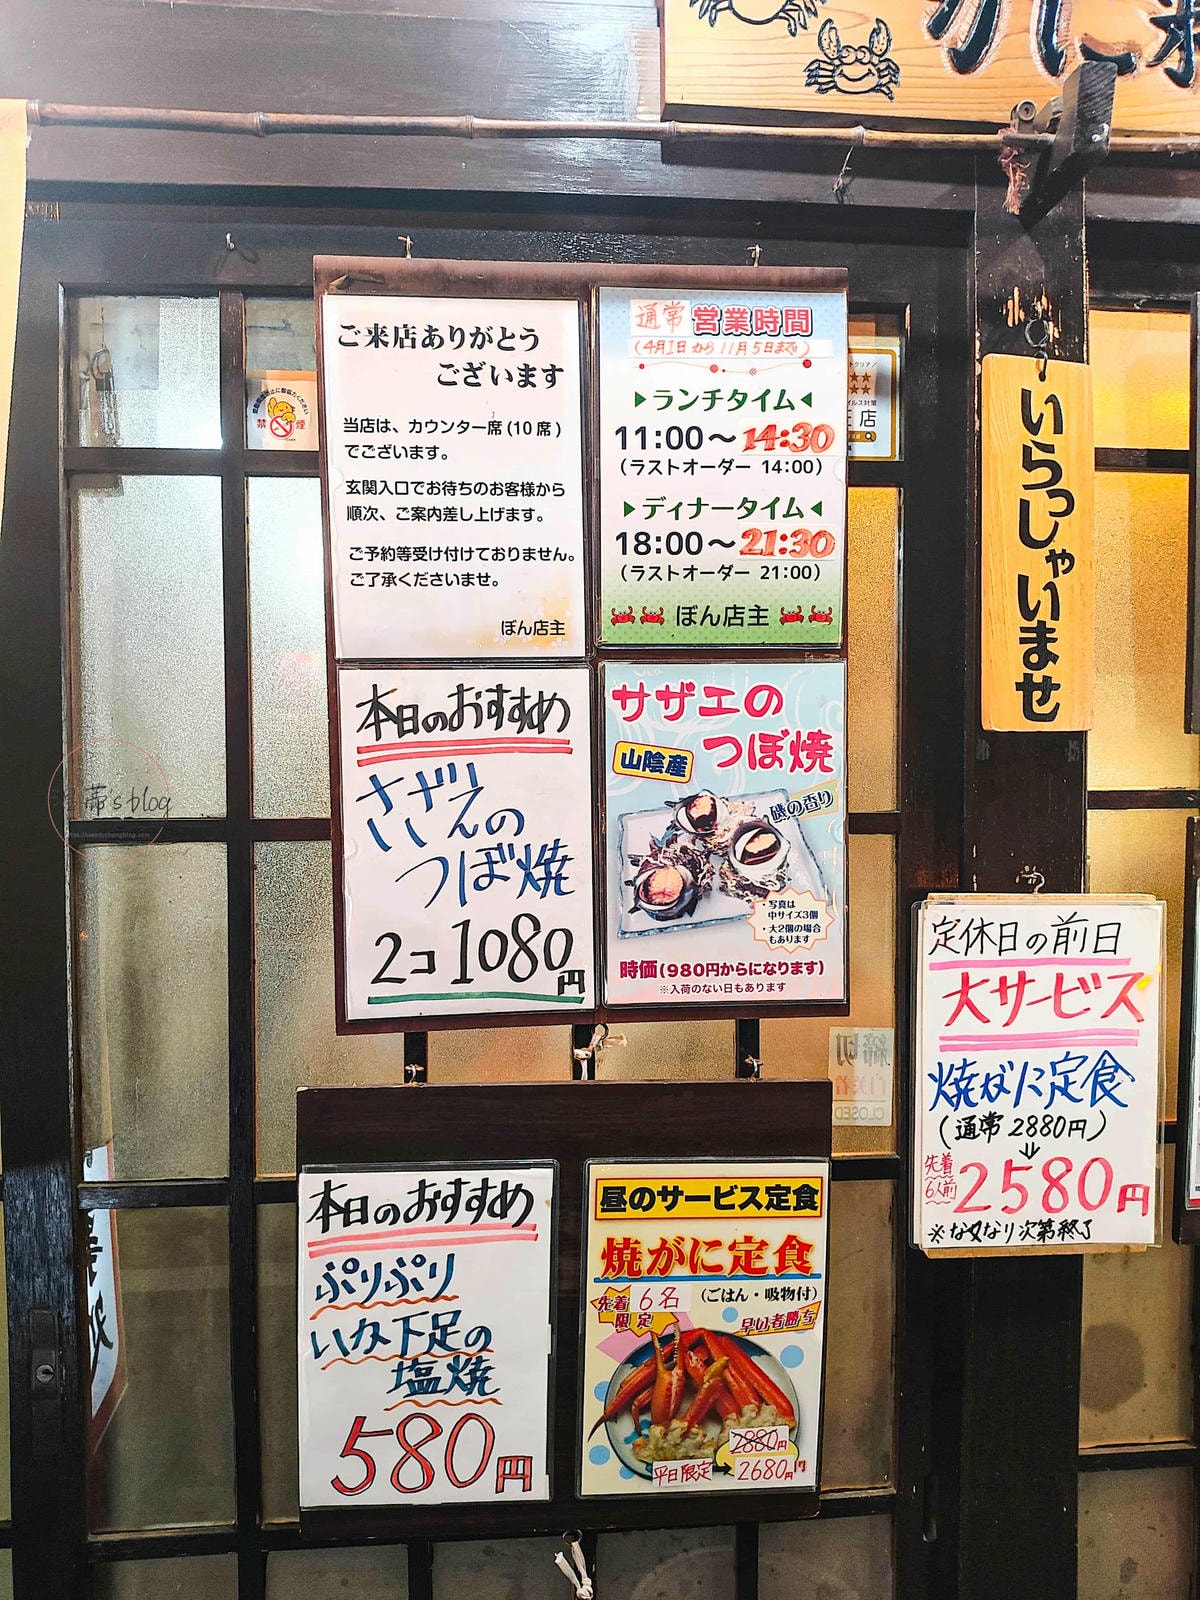 ご来店ありがとう
ございます
当店は、カウンター席(10席)
でございます。
玄関入口でお待ちのお客様から
順次、ご案内差し上げます。
ご予約等受け付けておりません。
ご了承くださいませ。
ぼん店主
通常 営業時間
(4月1日から11月5日まで)
▶ランチタイム◀
11:00〜14:30
(ラストオーダー 14:00)
▶ディナータイム◀
18:00〜21:30
(ラストオーダー 21:00)
ぼん店主
禁煙
店
いらっしゃいませ
本日のおすすめ
さざえの
つぼ焼
2コ 1080円
サザエの
つぼ焼
山陰産
磯の香り
・写真は
中サイズ3個
・大2個の場合
もあります
時価(980円からになります)
※入荷のない日もあります
定休日の前日
大サービス
焼がに定食
(通常2880円)
先着
6人前
2580円
※なくなり次第終了
締切
CLOSED
本日のおすすめ
ぷりぷり
いか下足の
塩焼
580円
昼のサービス定食
焼がに定食
先着 6名
限定
(ごはん・吸物付)
早い者勝ち
2880円
平日限定➡2680円
's blog
https://wendychangblog.com